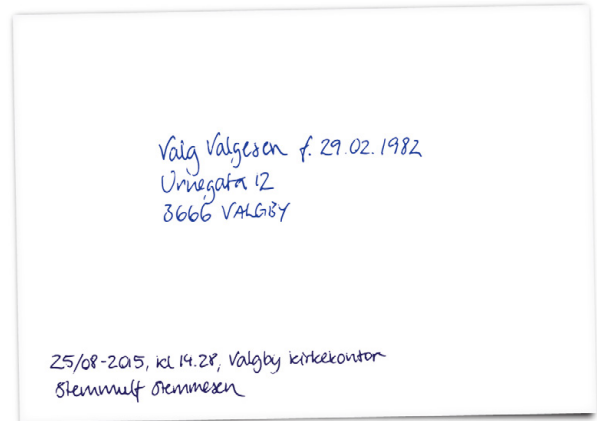 Valg Valgesen f. 29.02.1982
Urnegata 12
3666 VALGBY
25/08-2015, kl 14.28, Valgby kirkekontor
Stemmulf Stemmesen